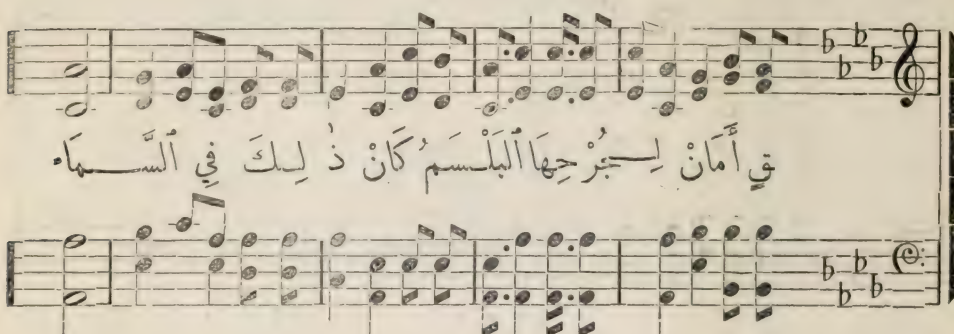 قٍ أَمَانْ لِجُرْحِهَا ٱلْبَلْسَمُ كَانْ ذٰلِكَ فِي ٱلسَّمَاء